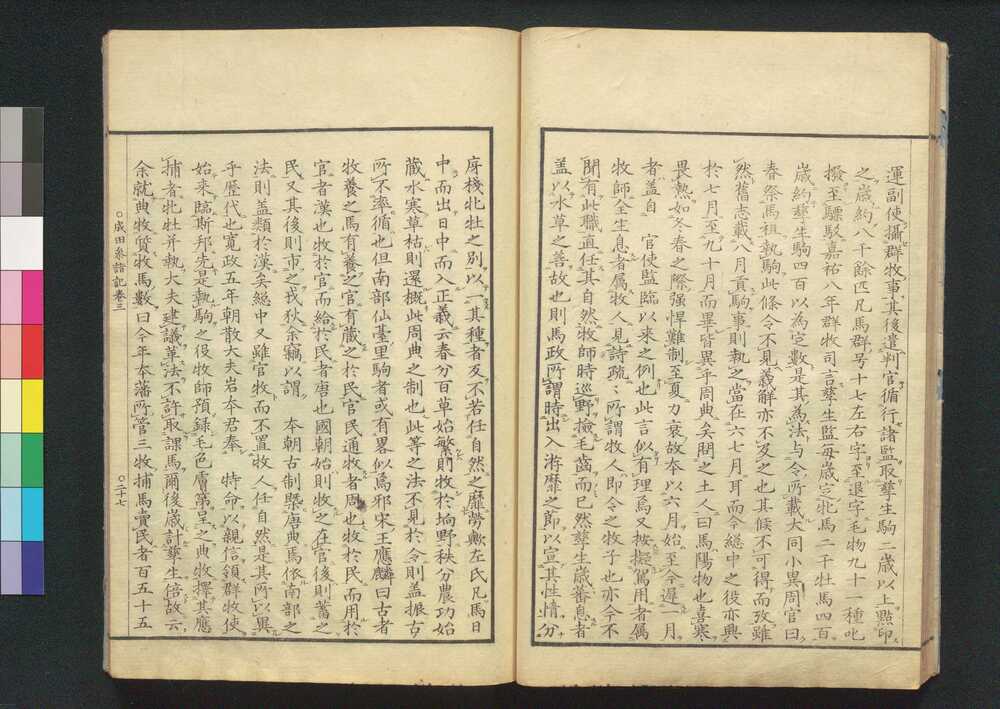 運副使攝群牧事其後遣判官循行諸監取孳生駒二歳以上點印
之歳約八千餘匹凡馬群号十七左右字至退字毛物九十一種叱
撥至驃駁嘉祐八年群牧司言孳生監毎歳定牝馬二千牡馬四百
歳約孳生駒四百以為定數是其為法与令所載大同小異周官曰
春祭馬祖執駒此條令不見義觧亦不及之也其候不可得而攷雖
然舊志載八月貢駒事則執之當在六七月耳而今総中之役亦興
於七月至九十月而畢皆異乎周典矣問之土人曰馬陽物也喜寒
畏熱如冬春之際强悍難制至夏力衰故本以六月始至今遲一月
者盖自 官使監臨以來之例也此言似有理焉又按撫駕用者属
牧師全生息者属牧人見詩疏 所謂牧人即令之牧子也亦今不
聞有此職直任其自然牧師時巡野撿毛齒而已然孳生歳蕃息者
盖以水草之善故也則馬政所謂時出入游靡之節以宣其性情分
房棧牝牡之別以一其種者反不若任自然之靡勞歟左氏凡馬日
中而出日中而入正義云春分百草始繁則牧於坰野秋分農功始
藏水寒草枯則還概此周典之制也此等之法不見於令則盖振古
所不率循也但南部仙臺里駒者或有畧似焉邪宋王應麟曰古者
牧養之馬有養之官有藏之於民官民通牧者周也牧於民而用於
官者漢也牧於官而給於民者唐也國朝始則牧之在官後則蓄之
民又其後則市之戎狄余竊以謂 本朝古制槩唐典馬依南部之
法則盖類於漢矣総中又雖官牧而不置牧人任自然是其所以異
乎歴代也寛政五年朝散大夫岩本君奉 特命以親信領群牧使
始来臨斯邦先是執駒之役牧師預録毛色膚第呈之典牧擇其應
捕者牝牡并執大夫建議革法不許取課馬爾後歳計孳生倍故云
余就典牧質牧馬數曰今年本藩所管三牧捕馬賣民者百五十五
○成田参詣記巻三
○二十七